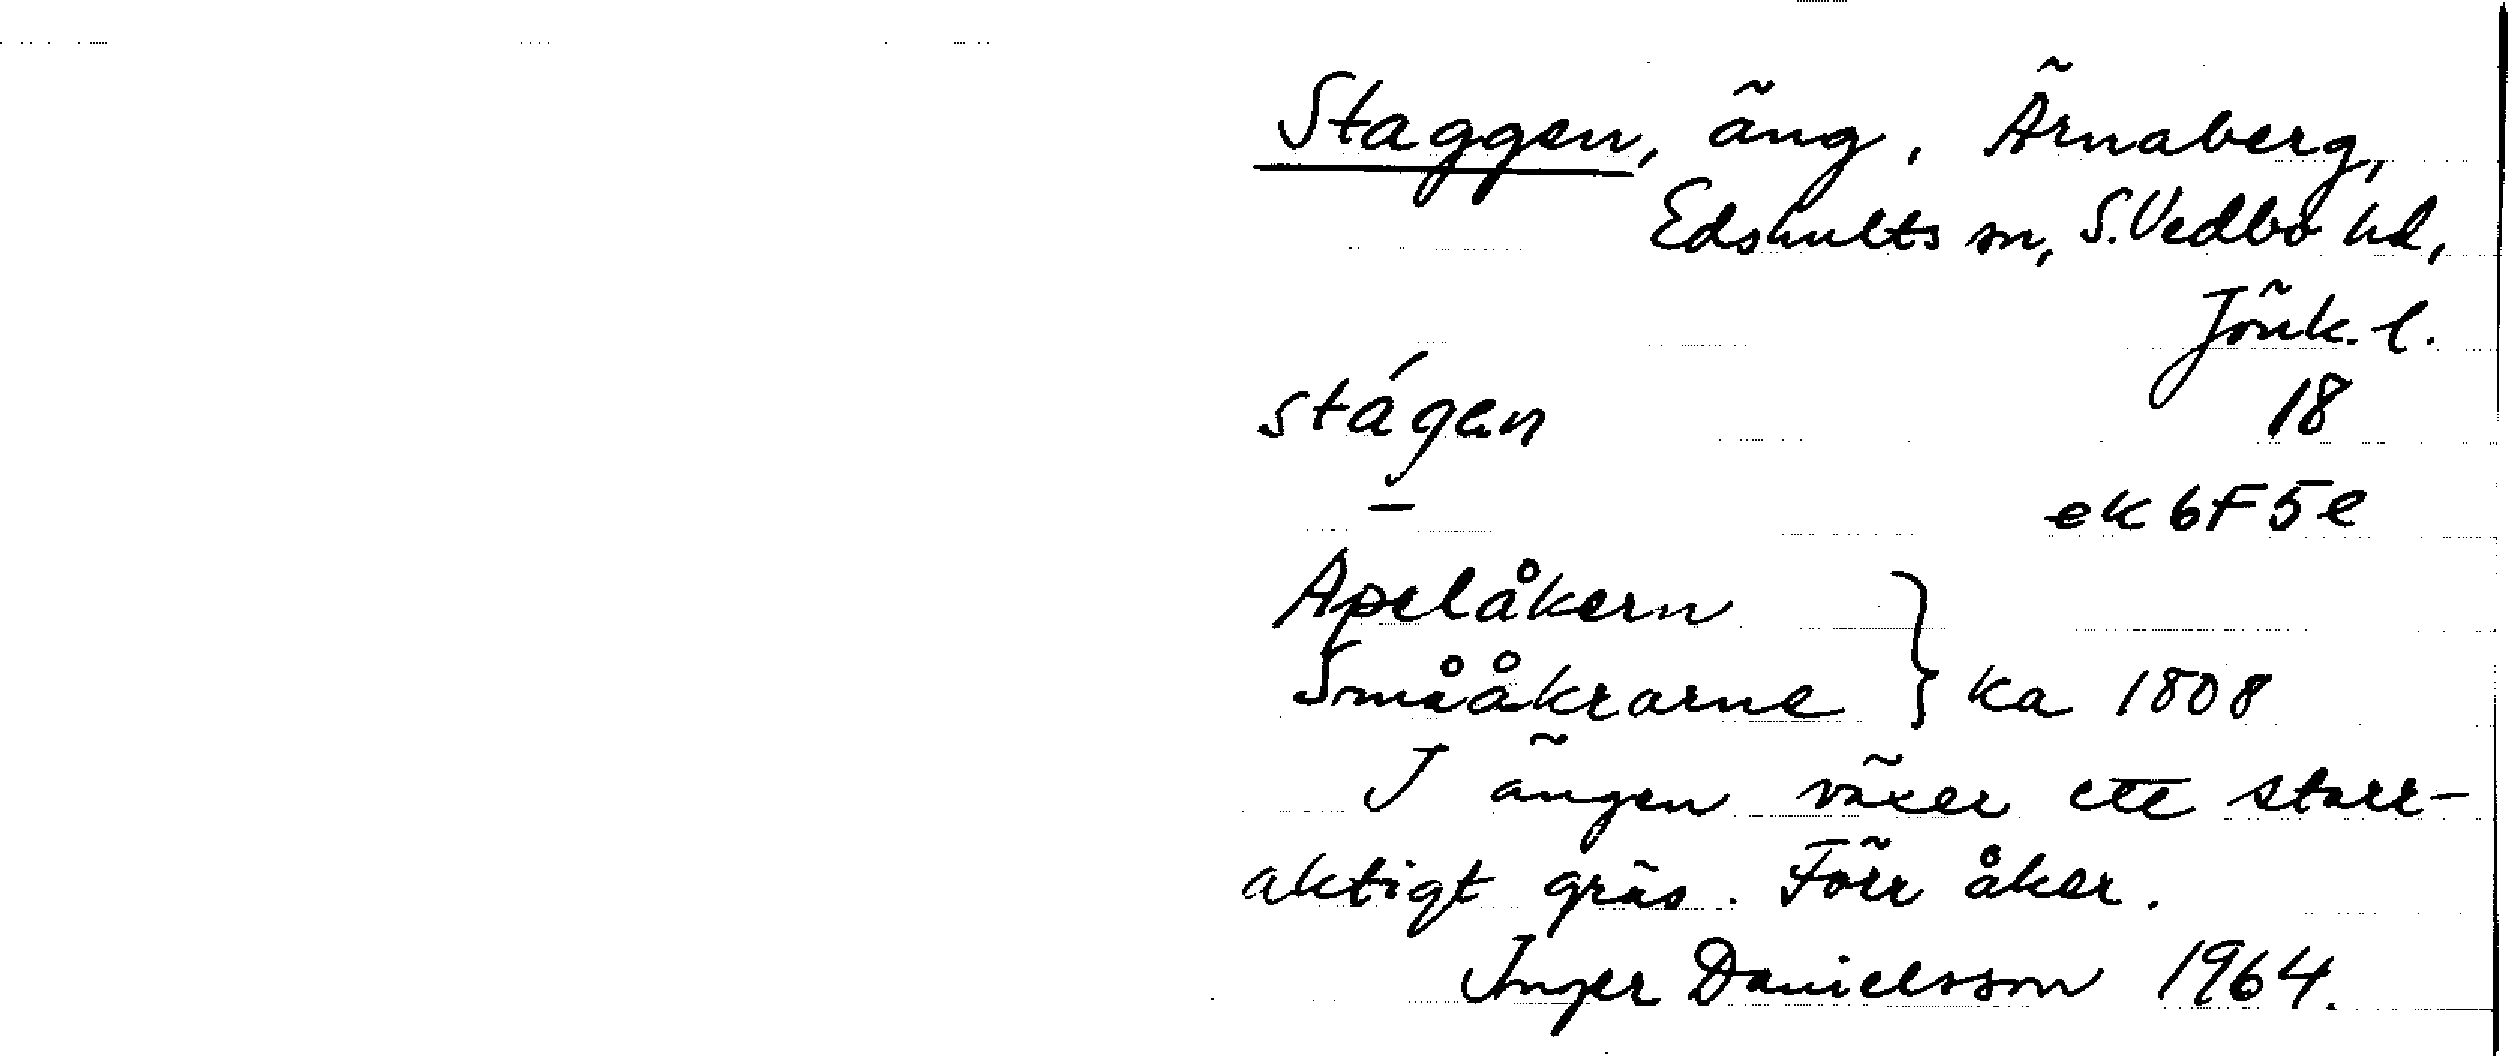 Staggen, äng, Ärnaberg,
Edshults sn, S. Vedbo hd,
Jönk. l.
stágen 18
ek 6F5e
Apelåkern
Smååkrarne } ka 1808
I ängen växer ett starr-
aktigt gräs. Förr åker.
Inger Danielsson 1964.